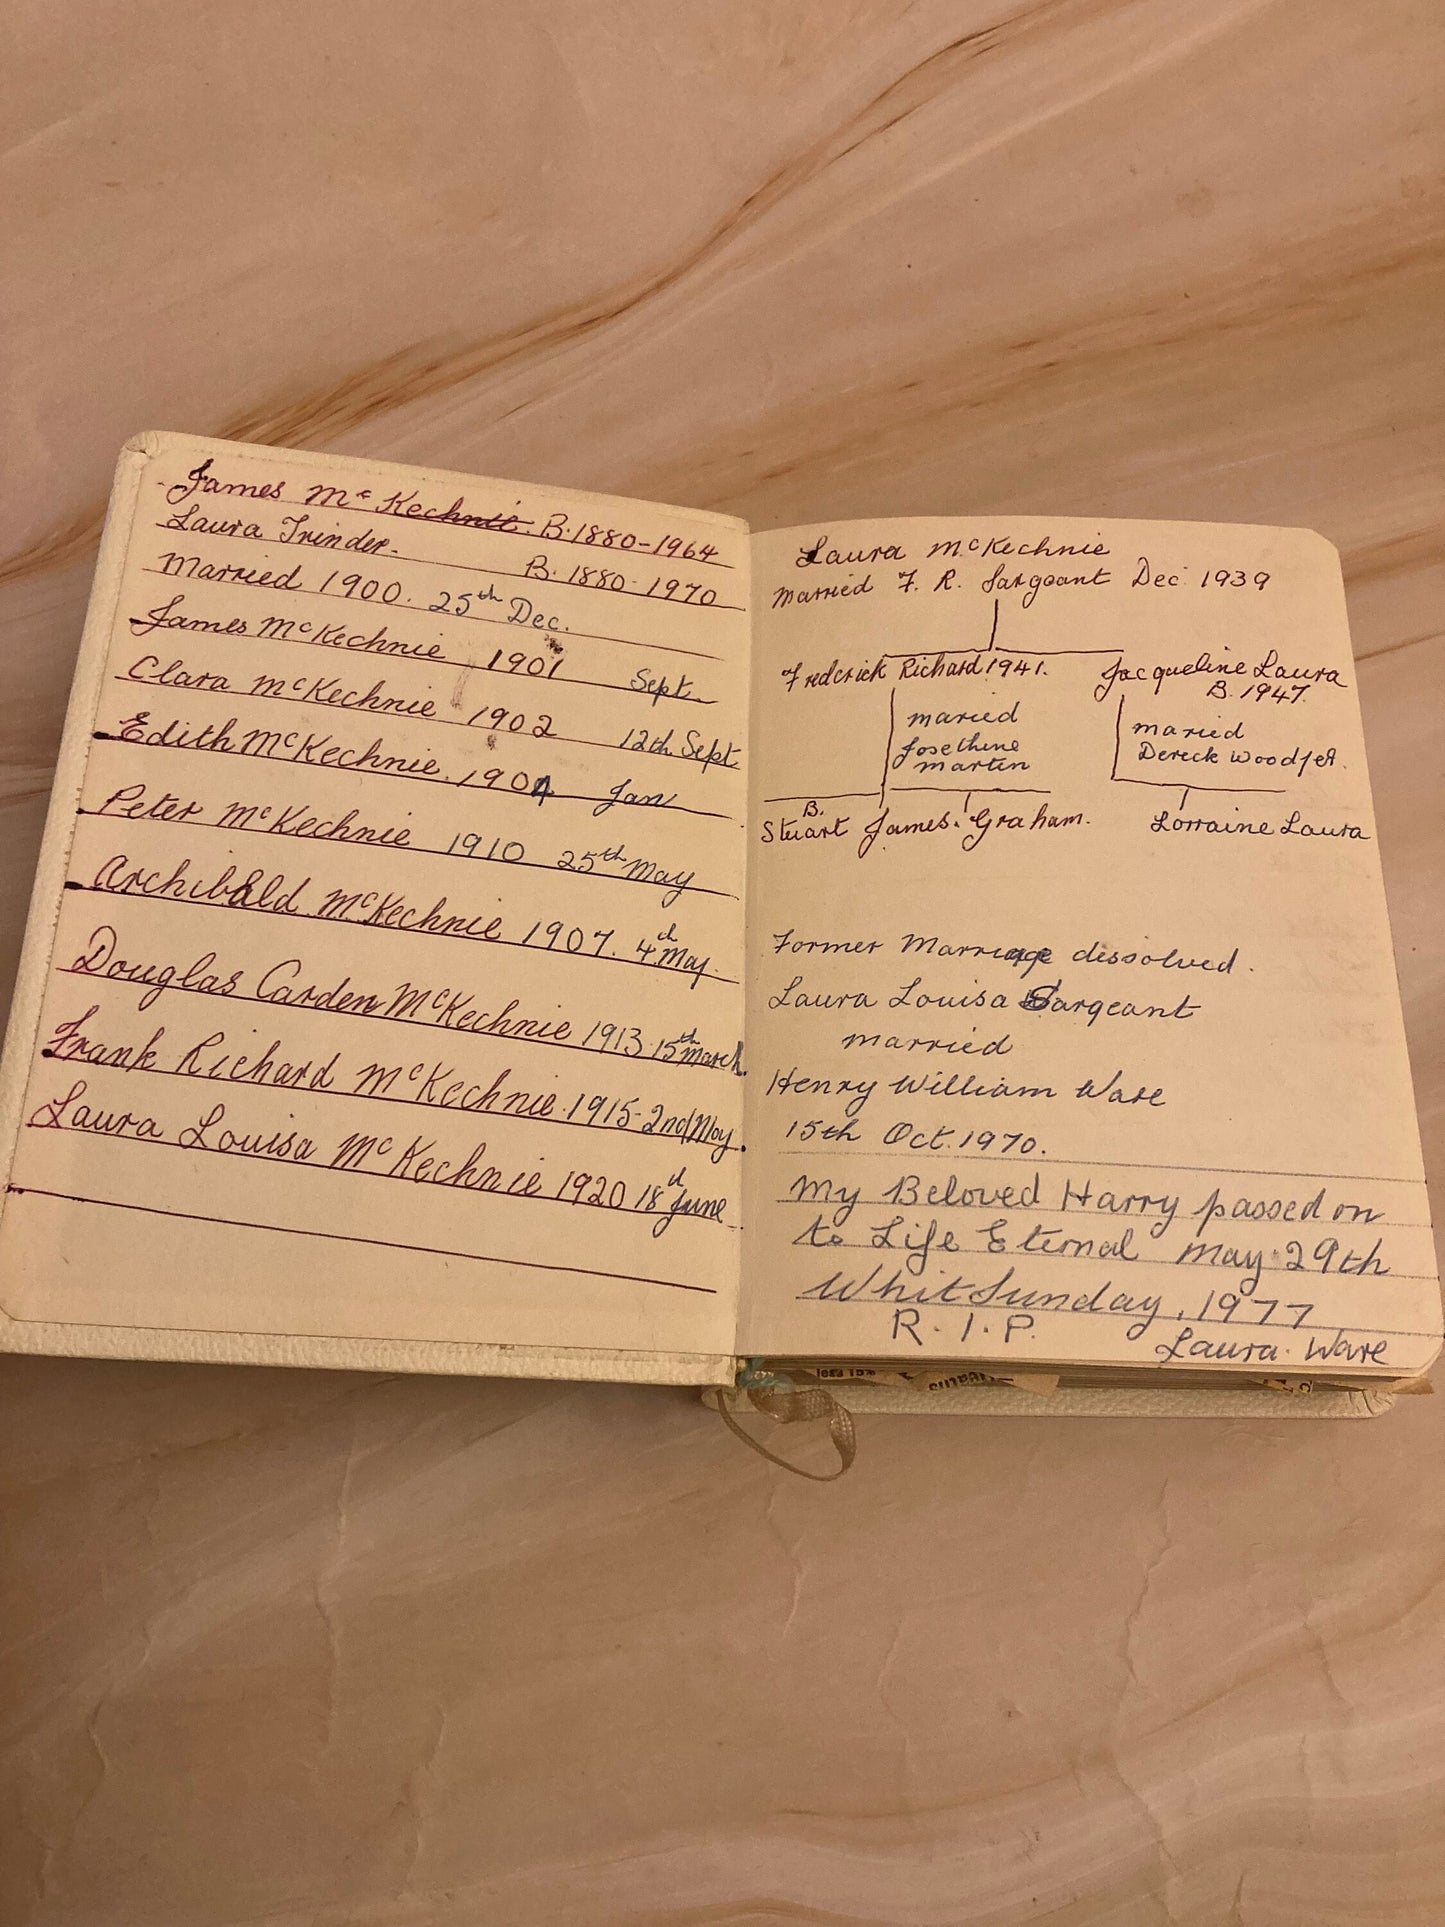 James McKechnie. B. 1880-1964
Laura Trinder. B. 1880-1970
Married 1900. 25th Dec.
James McKechnie 1901 Sept.
Clara McKechnie 1902 12th Sept
Edith McKechnie. 1904 Jan
Peter McKechnie 1910 25th May
Archibald McKechnie 1907. 4th May.
Douglas Carden McKechnie 1913 15th March.
Frank Richard McKechnie. 1915-2nd May.
Laura Louisa McKechnie 1920 18th June
Laura McKechnie
Married F. R. Sargeant Dec. 1939
Frederick Richard 1941. Jacqueline Laura
B. 1947.
maried
Josethine
martin
maried
Dereck Woodjet.
B.
Stuart James. Graham. Lorraine Laura
Former Marriage dissolved.
Laura Louisa Sargeant
married
Henry William Ware
15th Oct. 1970.
My Beloved Harry passed on
to Life Eternal May 29th
Whit Sunday, 1977
R.I.P.
Laura. Ware